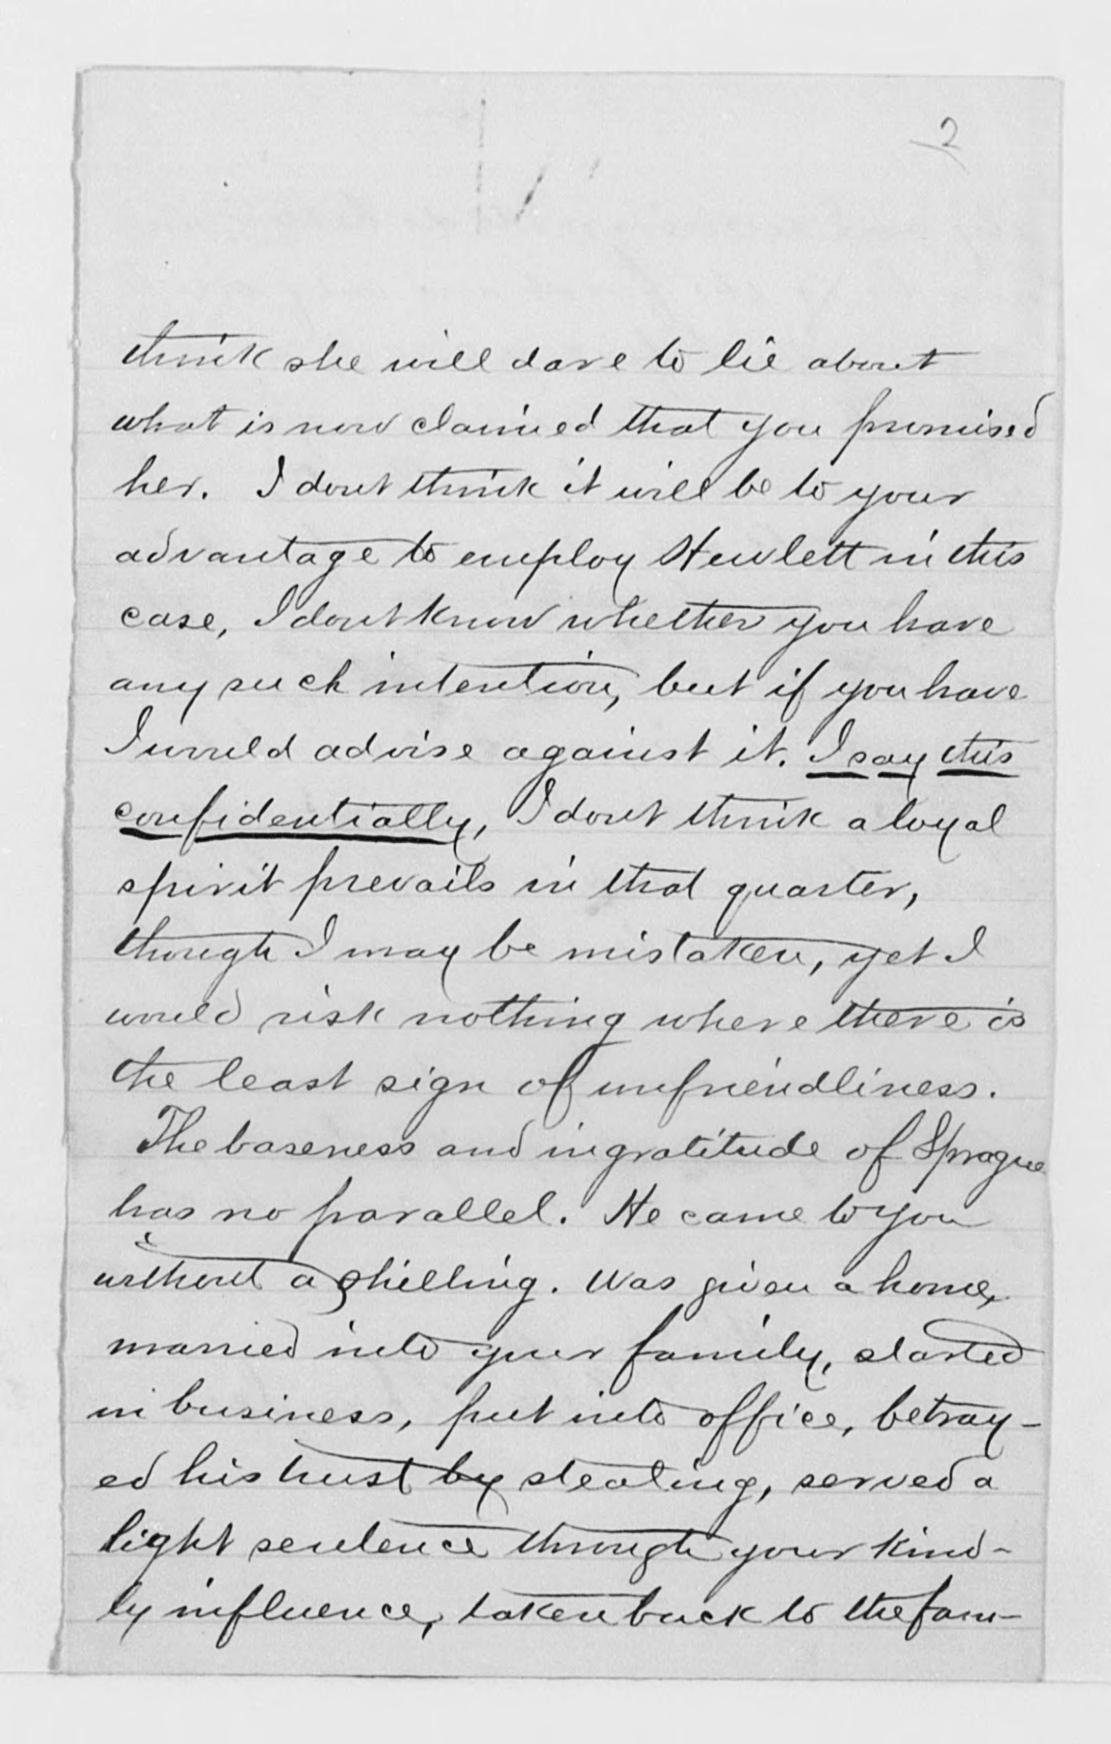 2
think she will dare to lie about
what is now claimed that you promised
her. I dont think it will be to your
advantage to employ Hewlett in this
case, I dont know whether you have
any such intention, but if you have
I would advise against it. I say this
confidentially, I dont think a loyal
spirit prevails in that quarter,
though I may be mistaken, yet I
would risk nothing where there is
the least sign of unfriendliness.
The baseness and ingratitude of Sprague
has no parallel. He came to you
without a shilling. Was given a home,
married into your family, started
in business, put into office, betray-
ed his trust by stealing, served a
light sentence through your kind-
ly influence, taken back to the fam-